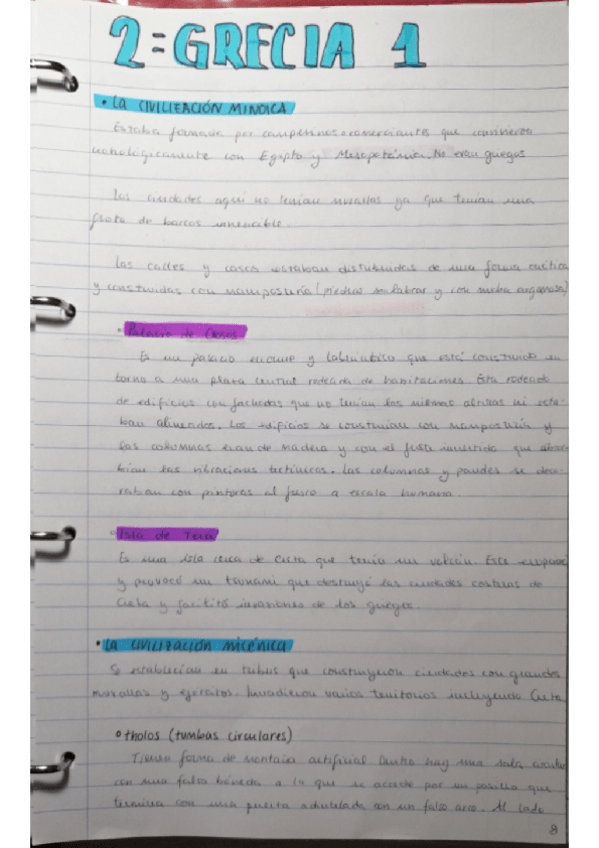 2=GRECIA 1
• LA CIVILIZACIÓN MINOICA
Estaba formada por campesinos comerciantes que
con Egipto y Mesopotamia. No eran griegos
Las ciudades aquí no tenían murallas ya que tenían una
flota de barcos invencible.
Las calles y casas estaban distribuidas de una forma caótica
y construidas con mampostería (piedras sin labrar y con mucha argamasa)
• Palacio de Cnosos
Es un palacio enorme y laberíntico que está construido en
torno a una plaza central rodeada de habitaciones. Esta rodeado
de edificios con fachadas que no tenían las mismas alturas ni esta-
ban alineados. Los edificios se construian con mampostería y
las columnas eran de madera y con el fuste invertido que absor-
bían las vibraciones tectónicas. Las columnas y paredes se deco-
raban con pinturas al fresco a escala humana.
• Isla de Tera
Es una isla cerca de Creta que tenía un volcán. Este erupcionó
y provocó un tsunami que destruyó las ciudades costeras de
Creta y facilitó invasiones de los griegos.
• LA CIVILIZACIÓN MICÉNICA
Se establecían en tribus que construyeron ciudades con grandes
murallas y ejércitos. Invadieron varios territorios incluyendo Creta.
• tholos (tumbas circulares)
Tienen forma de montaña artificial. Dentro hay una sala circular
con una falsa bóveda a la que se accede por un pasillo que
termina con una puerta adintelada con un falso arco. Al lado
8